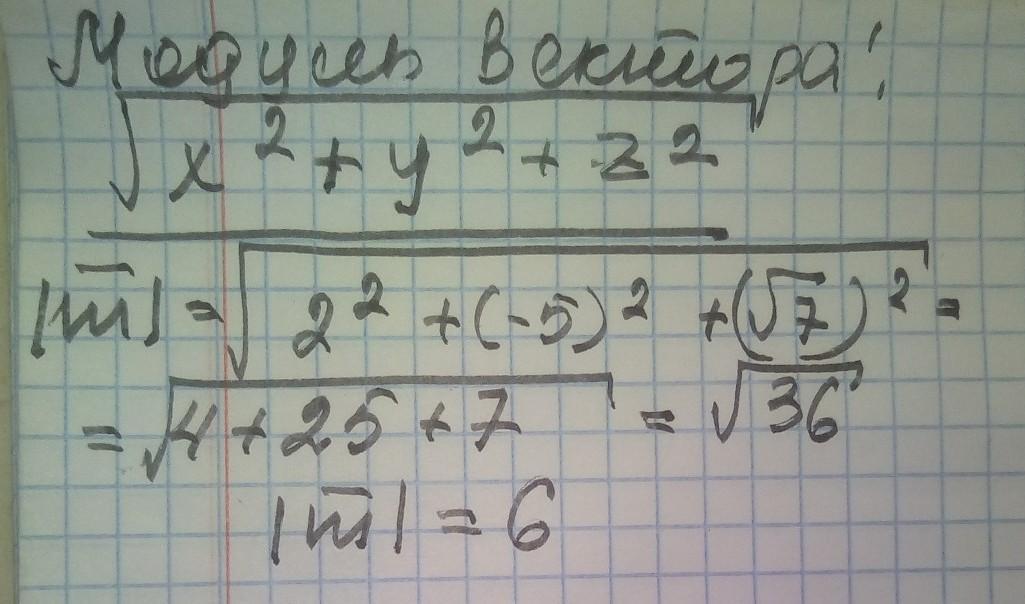 Модуль вектора:
√x² + y² + z²
|m̅| = √2² + (-5)² + (√7)² =
= √4 + 25 + 7 = √36
|m̅| = 6